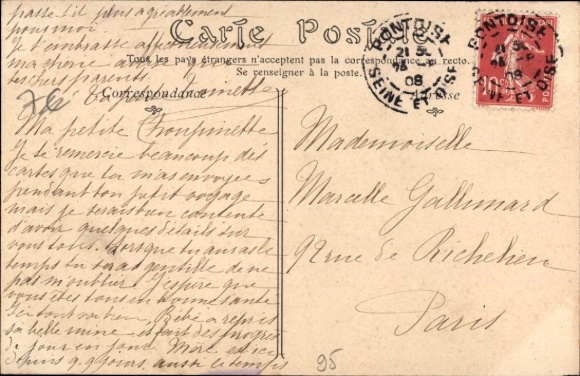 passe-t-il plus agréablement
pour moi.
Je t'embrasse affectueusement
ma chérie
tes chers parents.
Carte Postale
Tous les pays étrangers n'acceptent pas la correspondance au recto.
Se renseigner à la poste.
Correspondance
Adresse
PONTOISE
SEINE ET OISE
08
PONTOISE
08
10
76
Ma petite Choupinette
Je te remercie beaucoup des
cartes que tu m'as envoyées
pendant ton petit voyage
mais je serais bien contente
d'avoir quelques détails sur
vous tous. Lorsque tu auras le
temps tu seras gentille de ne
pas m'oublier. J'espère que
vous êtes tous en bonne santé
Ici tout va bien. Bébé a repris
sa belle mine et fait des progrès
de jour en jour. Mère est ici
depuis q.q. jours. aussi le temps
Mademoiselle
Marcelle Gallimard
92 rue de Richelieu
Paris
95